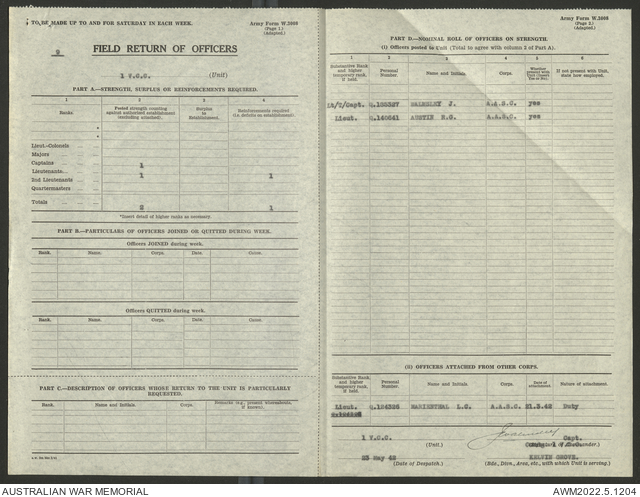 TO BE MADE UP TO AND FOR SATURDAY IN EACH WEEK.
Army Form W.3008
(Page 1.)
(Adapted.)
9
FIELD RETURN OF OFFICERS
1 V.C.C. (Unit)
PART A—STRENGTH, SURPLUS OR REINFORCEMENTS REQUIRED.
1
Ranks.
Posted strength counting against authorised establishment (excluding attached).
3
Surplus to Establishment.
4
Reinforcements required
Lieut.-Colonels
Majors
Captains 1
Lieutenants 1 1
2nd Lieutenants
Quartermasters
Totals 2 1
*Insert detail of higher ranks as necessary.
PART B—PARTICULARS OF OFFICERS JOINED OR QUITTED DURING WEEK.
Officers JOINED during week.
Rank. Name. Corps. Date. Cause.
Officers QUITTED during week.
Rank. Name. Corps. Date. Cause.
PART C—DESCRIPTION OF OFFICERS WHOSE RETURN TO THE UNIT IS PARTICULARLY REQUESTED.
Rank. Name and Initials. Corps. Remarks (e.g., present whereabouts, if known).
Army Form W.3008
(Page 2.)
(Adapted.)
PART D—NOMINAL ROLL OF OFFICERS ON STRENGTH.
(i) Officers posted to Unit (Total to agree with column 2 of Part A).
1 2 3 4 5 6
Substantive Rank and higher temporary rank, if held.
Personal Number.
Name and Initials.
Corps.
If not present with Unit, state how employed.
J. A.A.S.C. yes
Lieut. Q.140641 AUSTIN A.A.S.C. yes
(ii) OFFICERS ATTACHED FROM OTHER CORPS.
Substantive Rank and higher temporary rank, if held.
Personal Number.
Name and Initials.
Corps.
Date of attachment.
Nature of attachment.
Lieut. L.C. A.A.S.C. 21.3.42 Duty
1 V.C.C. Capt.
(Unit.)
23 May 42 KELVIN GROVE.
(Date of Despatch.) (Bde., Divn., Area, etc., with which Unit is serving.)
AUSTRALIAN WAR MEMORIAL
AWM2022.5.1204